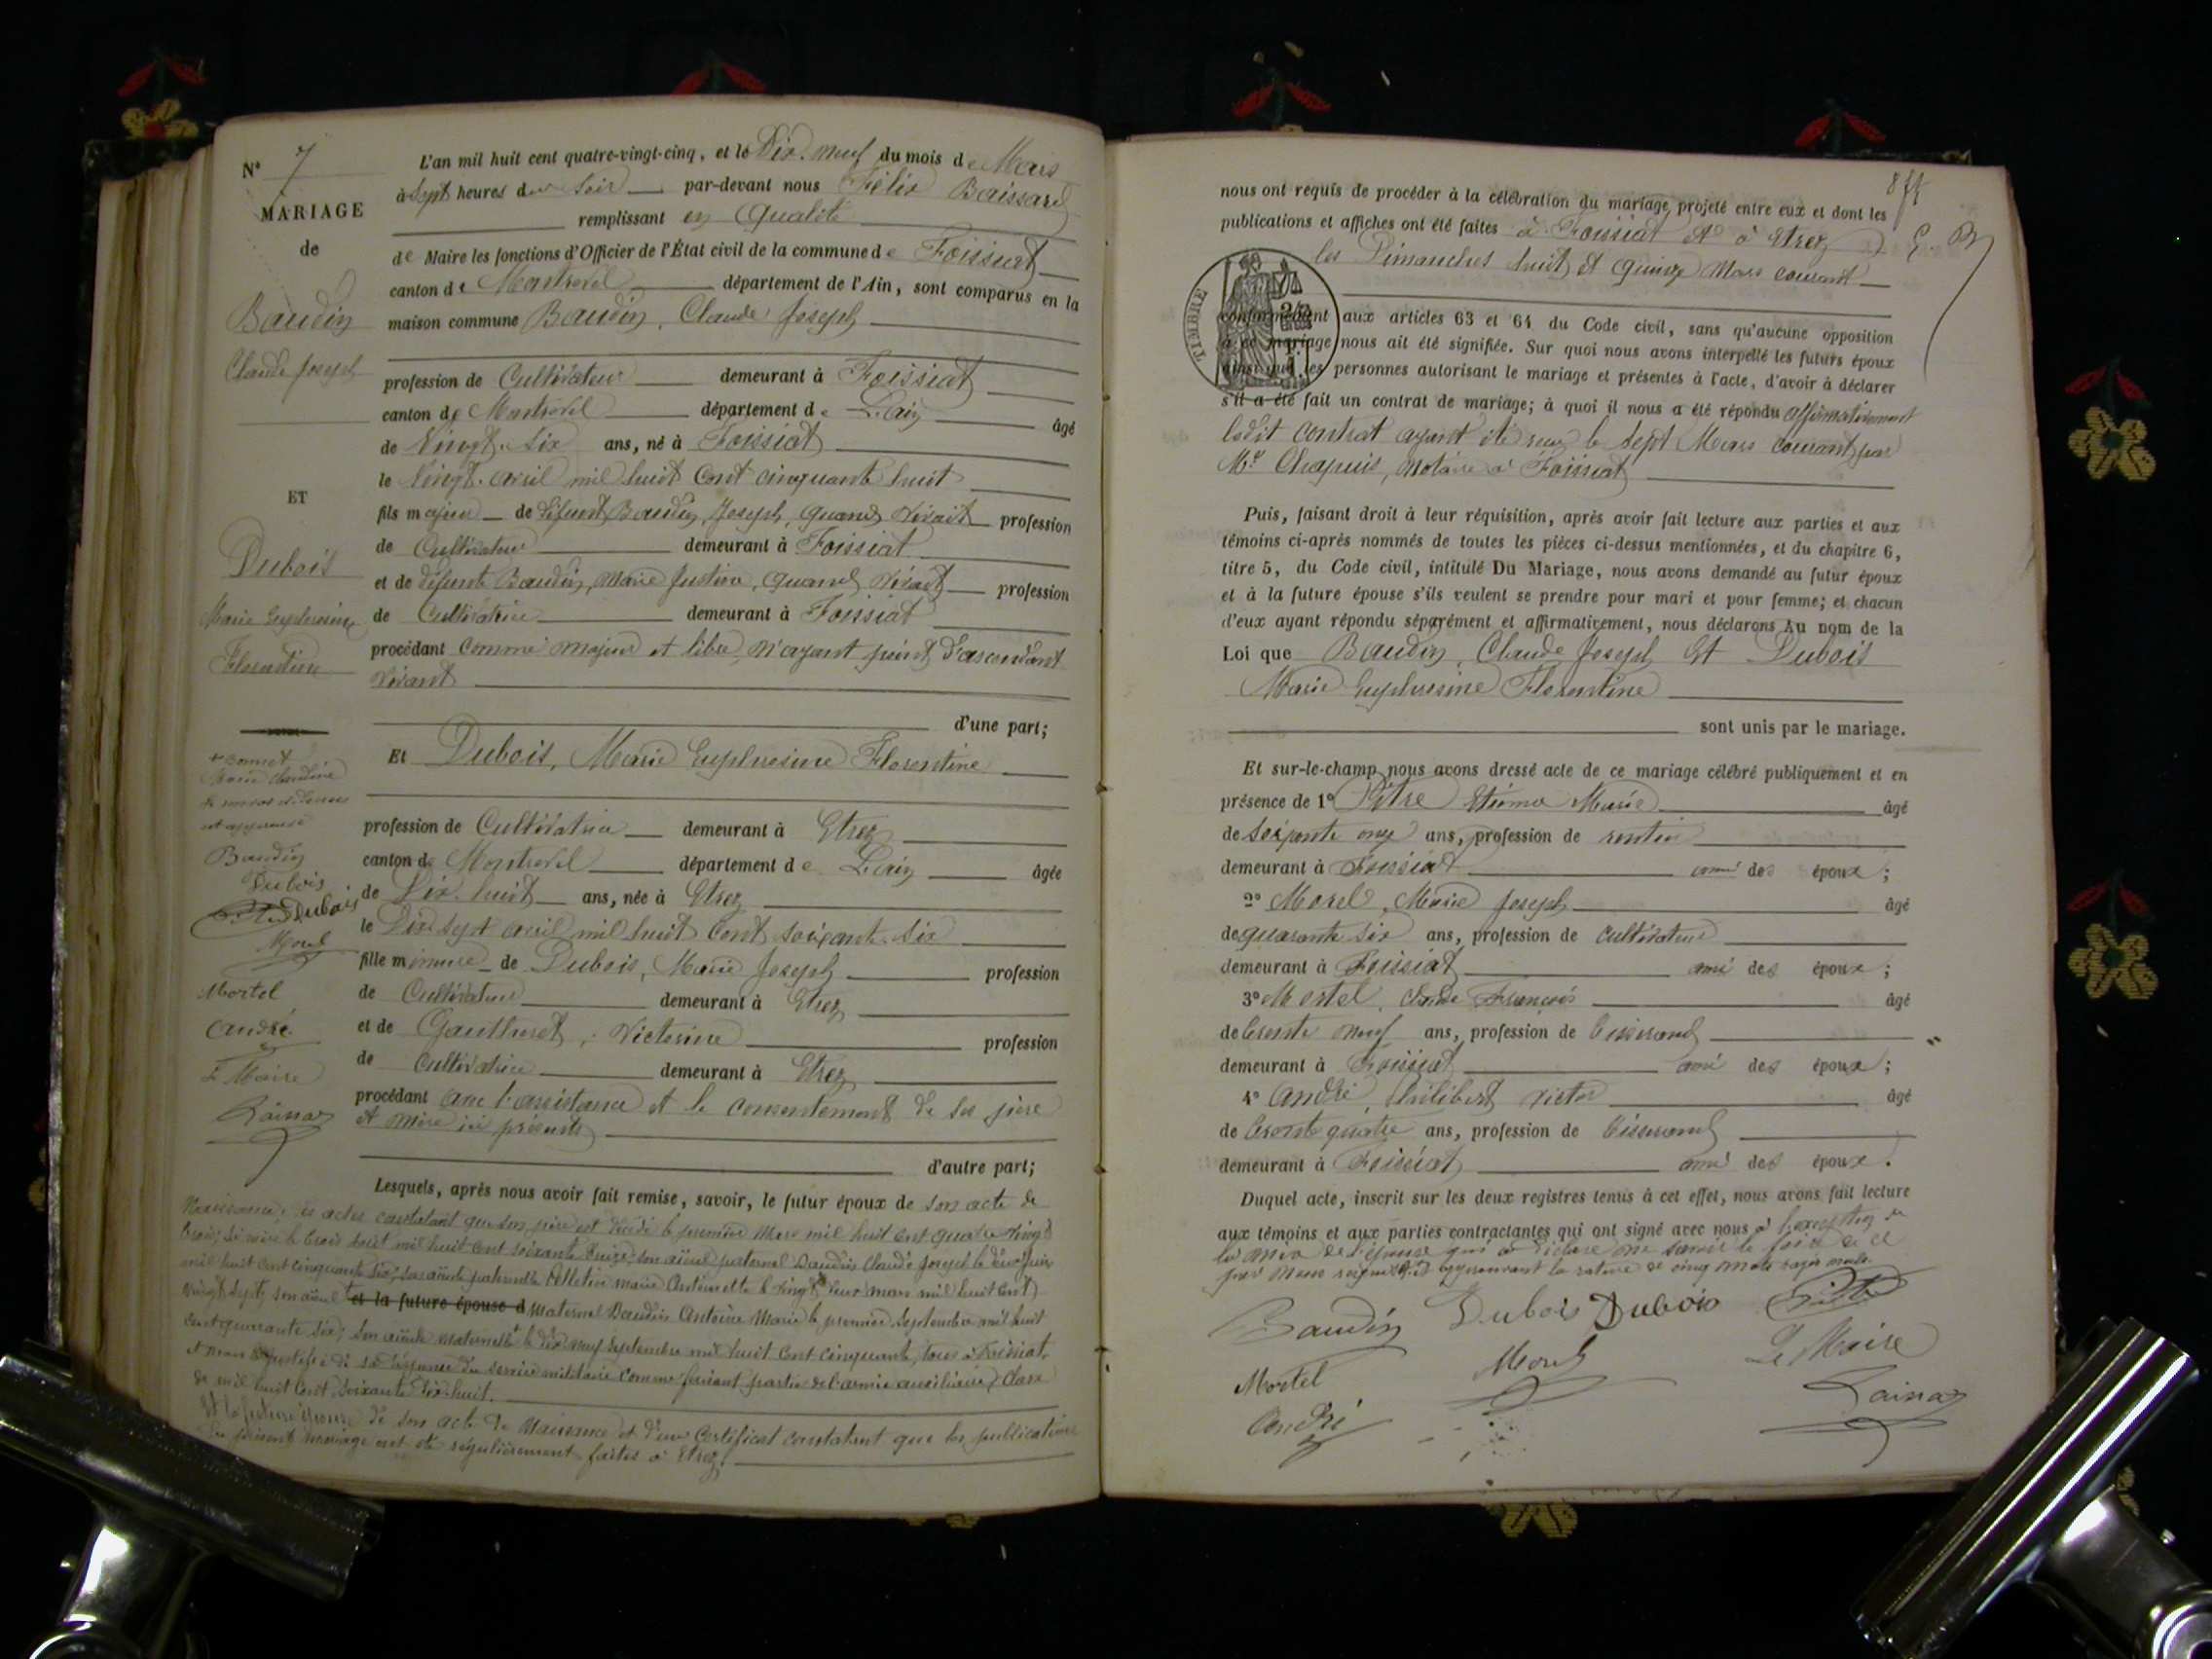 N° 7
MARIAGE
de
Baudin
Claude Joseph
ET
Dubois
Marie Euphrosine
Florentine
+ Bonnet
Marie Claudine
Baudin
Dubois
Dubois
Morel
Mortel
André
Le Maire
L'an mil huit cent quatre-vingt-cinq, et le Dix-neuf du mois de Mars
à Sept heures du Soir par-devant nous Félix
remplissant en Qualité
de Maire les fonctions d'Officier de l'État civil de la commune de Foissiat
canton de Montrevel département de l'Ain, sont comparus en la
maison commune Baudin, Claude Joseph
profession de Cultivateur demeurant à Foissiat
canton de Montrevel département de L'Ain âgé
de Vingt-Six ans, né à Foissiat
le Vingt avril mil huit Cent cinquante huit
fils majeur de défunt Baudin, Joseph, quand vivait profession
de Cultivateur demeurant à Foissiat
et de défunte Baudin, Marie Justine, quand vivait profession
de Cultivatrice demeurant à Foissiat
procédant comme majeur et libre, n'ayant point d'ascendant
vivant
d'une part;
Et Dubois, Marie Euphrosine Florentine
profession de Cultivatrice demeurant à Etrez
canton de Montrevel département de L'Ain âgée
de Dix-huit ans, née à Etrez
le Dix-sept avril mil huit Cent soixante-six
fille mineure de Dubois, Marie Joseph profession
de Cultivateur demeurant à Etrez
et de Gautheret, Victorine profession
de Cultivatrice demeurant à Etrez
procédant avec l'assistance et le consentement de ses père
et mère ici présents
d'autre part;
Lesquels, après nous avoir fait remise, savoir, le futur époux de son acte de
Naissance; des actes constatant que son père est décédé le premier Mars mil huit cent quatre vingt
trois; sa mère le trois août mil huit cent soixante treize; son aïeul paternel Baudin Claude Joseph le deux juin
mil huit cent cinquante six; son aïeule paternelle Pelletin Marie Antoinette le vingt deux mars mil huit cent
vingt sept; son aïeul et la future épouse d maternel Baudin Antoine Marie le premier Septembre mil huit
cent quarante six; son aïeule maternelle + le dix neuf septembre mil huit cent cinquante, tous à Foissiat,
du service militaire comme faisant partie de l'armée auxiliaire, classe
de mil huit cent soixante dix-huit.
Et la future épouse de son acte de Naissance et d'un Certificat constatant que les publications
du présent mariage ont été régulièrement faites à Etrez.
nous ont requis de procéder à la célébration du mariage projeté entre eux et dont les
publications et affiches ont été faites à Foissiat et à Etrez
les Dimanches huit et quinze Mars courant
TIMBRE
conformément aux articles 63 et 64 du Code civil, sans qu'aucune opposition
à ce mariage nous ait été signifiée. Sur quoi nous avons interpellé les futurs époux
ainsi que les personnes autorisant le mariage et présentes à l'acte, d'avoir à déclarer
s'il a été fait un contrat de mariage; à quoi il nous a été répondu affirmativement
ledit contrat ayant été reçu le sept Mars courant par
Me Chapuis, Notaire à Foissiat
Puis, faisant droit à leur réquisition, après avoir fait lecture aux parties et aux
témoins ci-après nommés de toutes les pièces ci-dessus mentionnées, et du chapitre 6,
titre 5, du Code civil, intitulé Du Mariage, nous avons demandé au futur époux
et à la future épouse s'ils veulent se prendre pour mari et pour femme; et chacun
d'eux ayant répondu séparément et affirmativement, nous déclarons Au nom de la
Loi que Baudin, Claude Joseph Et Dubois
Marie Euphrosine Florentine
sont unis par le mariage.
Et sur-le-champ nous avons dressé acte de ce mariage célébré publiquement et en
présence de 1° Pitre Etienne Marie âgé
de Soixante onze ans, profession de rentier
demeurant à Foissiat ami des époux;
2° Morel, Marie Joseph âgé
de quarante six ans, profession de cultivateur
demeurant à Foissiat ami des époux;
3° Mortel, Claude François âgé
de trente neuf ans, profession de tisserand
demeurant à Foissiat ami des époux;
4° André, Philibert Victor âgé
de trente quatre ans, profession de tisserand
demeurant à Foissiat ami des époux.
Duquel acte, inscrit sur les deux registres tenus à cet effet, nous avons fait lecture
aux témoins et aux parties contractantes qui ont signé avec nous à l'exception de
la mère de l'épouse qui a déclaré ne savoir le faire de ce
par nous requise. Et approuvant la rature de cinq mots rayés nuls.
Baudin Dubois Dubois
Mortel Morel Le Maire
André